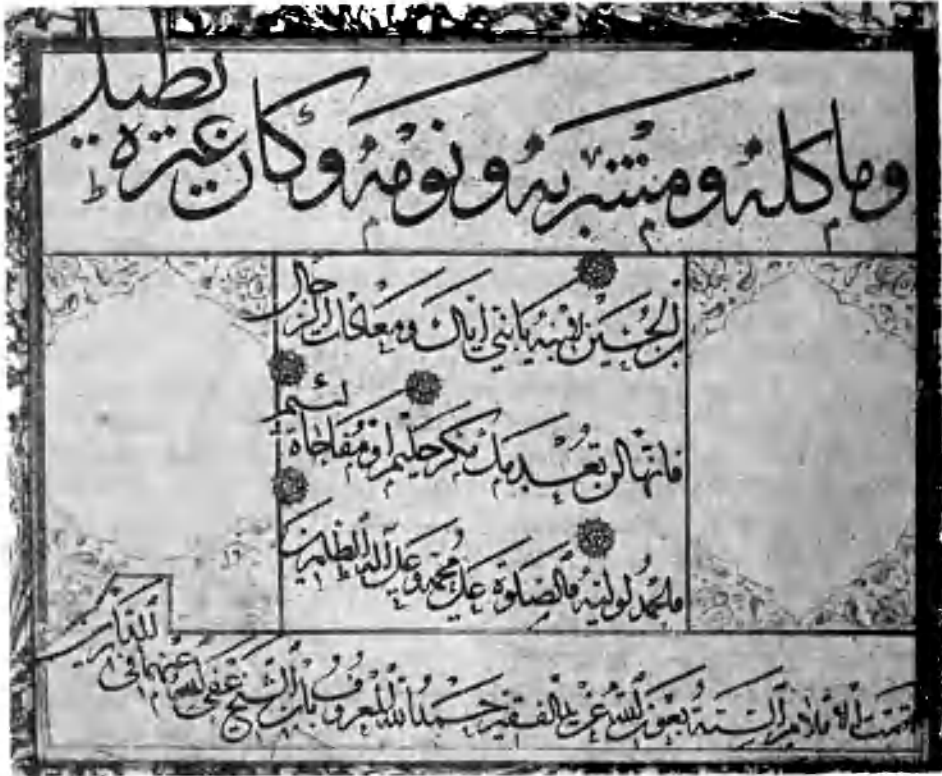 ومأكله ومشربه ونومه وكان غيره يطيل
بن الحسين لابنه يا بني اياك ومعاداة الرجال
فانها لن تعدمك مكر حليم او مفاجاة لئيم
والحمد لوليه والصلوة على محمد وعلى آله الطاهرين
تمت الاقلام الستة بعون الله عن يد الفقير حمد الله المعروف بابن الشيخ عفى الله عنهما في الدارين